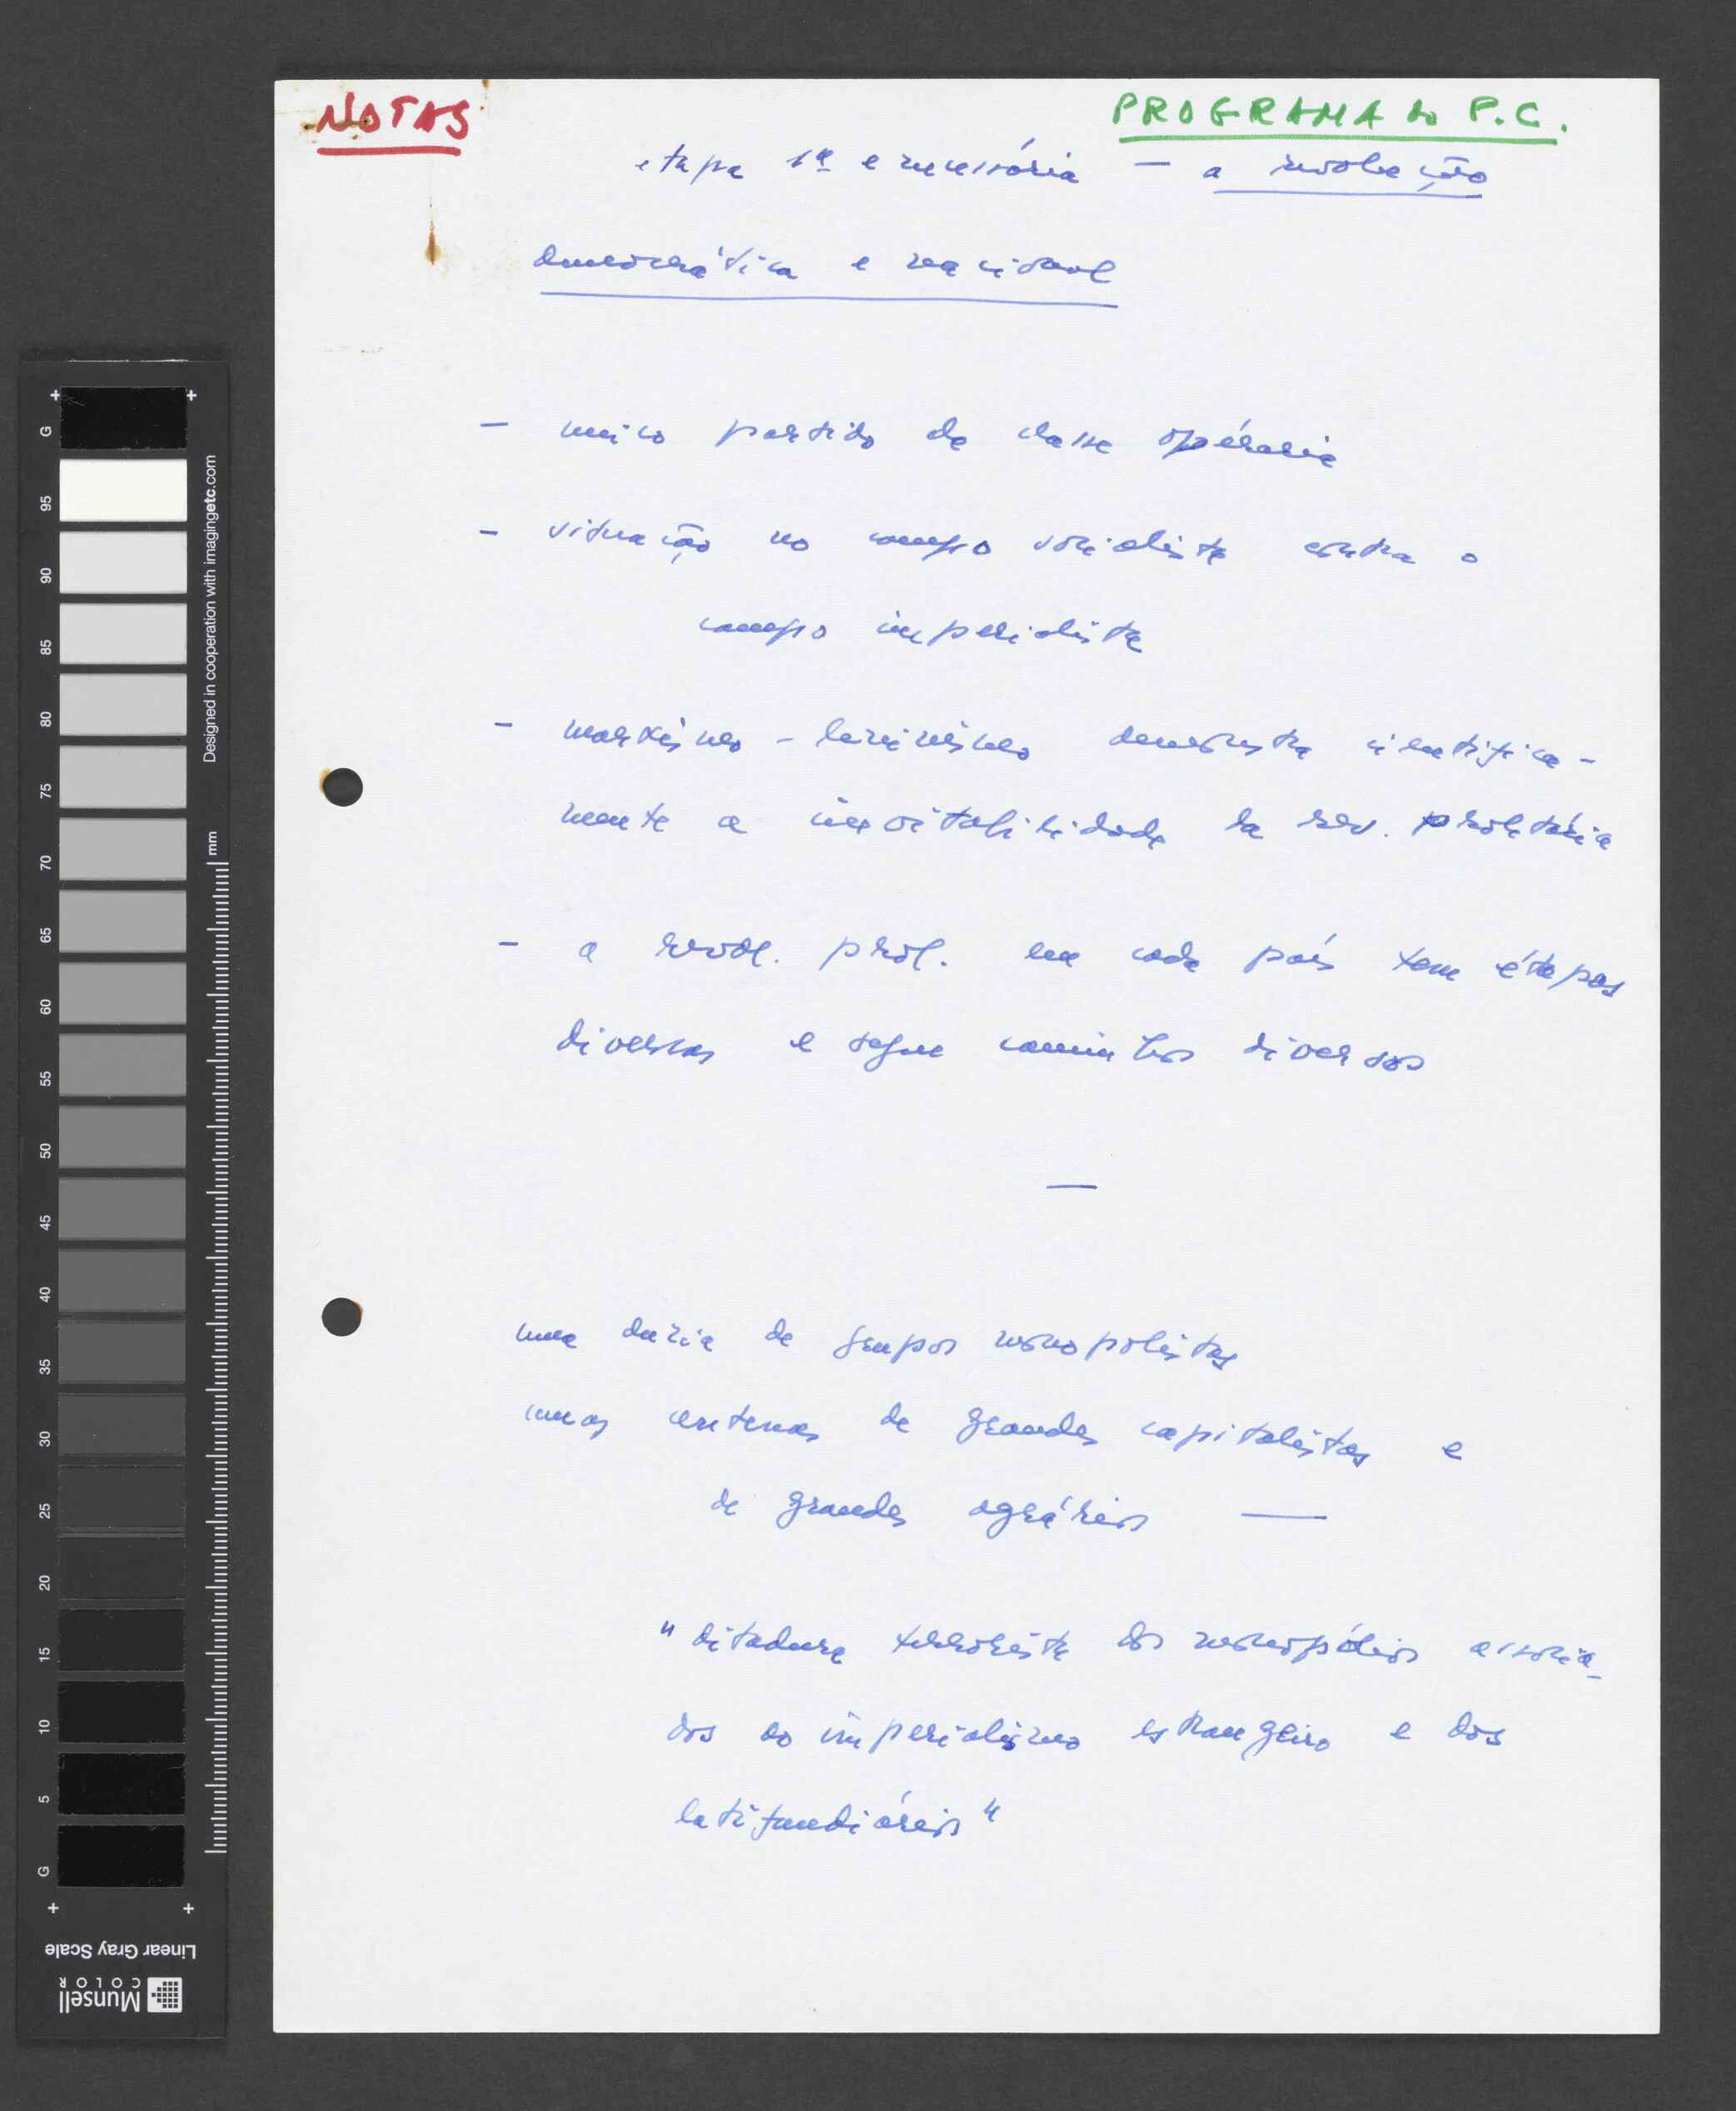 NOTAS
PROGRAMA do P.C.
etapa 1ª e necessária — a revolução
democrática e nacional
- único partido da classe operária
- situação no campo socialista contra o
campo imperialista
- marxismo-leninismo demonstra cientifica-
mente a inevitabilidade da rev. proletária
- a revol. prol. em cada país tem étapas
diversas e segue caminhos diversos
—
uma duzia de grupos monopolistas
umas centenas de grandes capitalistas e
de grandes agrários —
"ditadura terrorista dos monopólios associa-
dos ao imperialismo estrangeiro e dos
latifundiários"
G
95
90
85
80
75
70
65
60
55
50
45
40
35
30
25
20
15
10
5
G
Designed in cooperation with imagingetc.com
mm
Linear Gray Scale
Munsell
COLOR